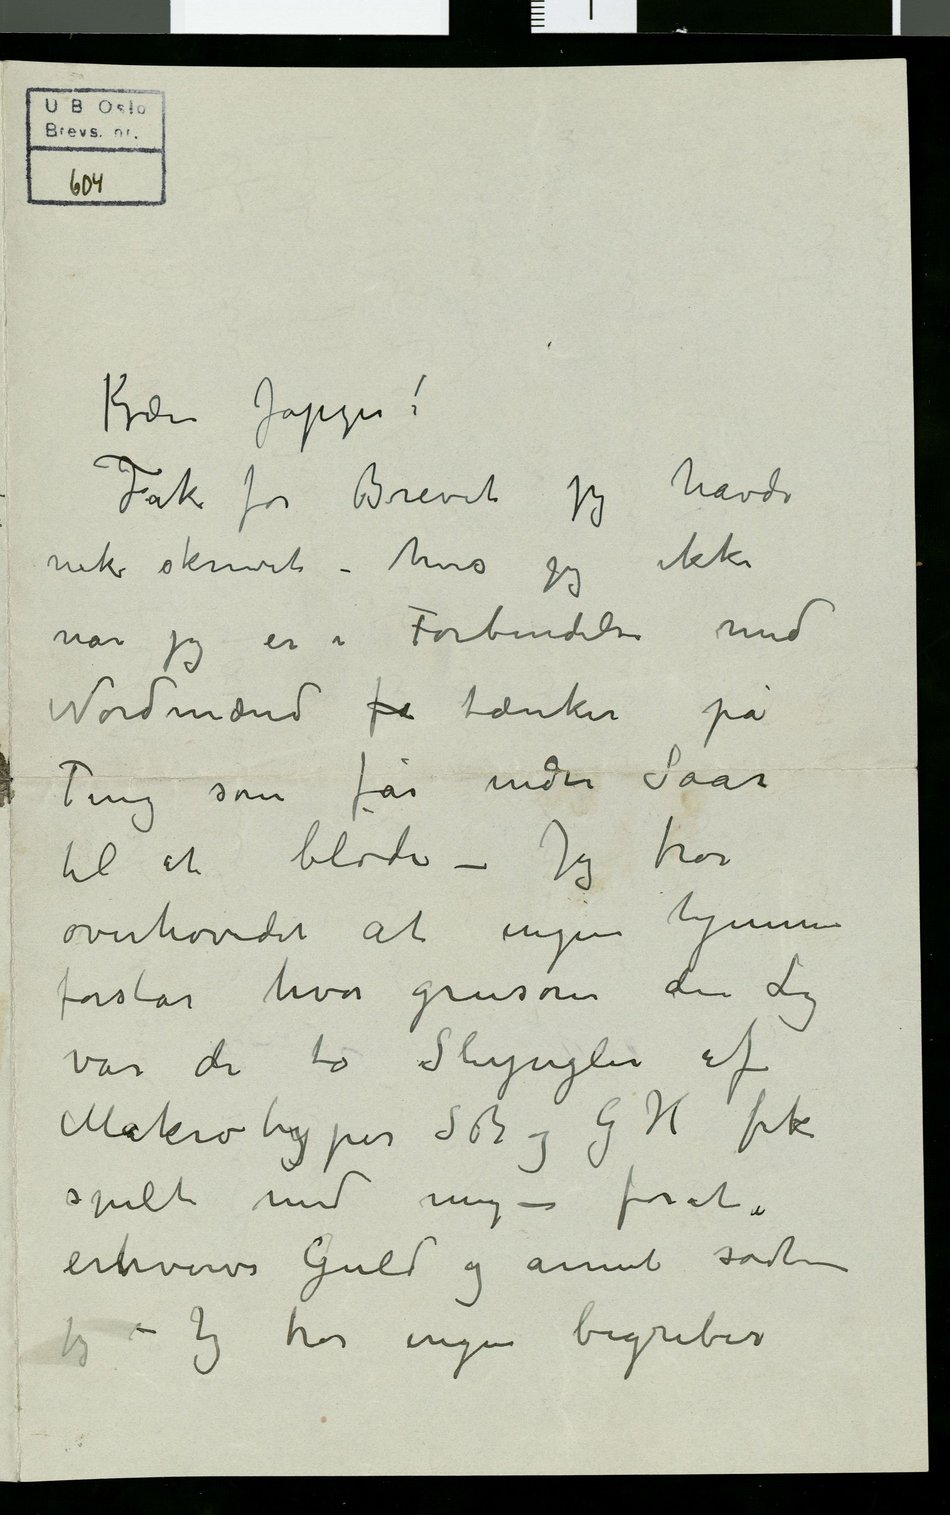 U B Oslo
Brevs. nr.
604
Kjære Jappe!
Tak for Brevet jeg havde
nok skrevet – hvis jeg ikke
når jeg er i Forbindelse med
Nordmænd få tænker på
Ting som får indre Saar
til at bløde – Jeg tror
overhovedet at ingen hjemme
forstår hvor grusom den Leg
var de to Slyngler af
Makrotyper SB og GH fik
spilt med mig – forat
erhverve Guld og annet sådan
Jeg tror ingen begriber